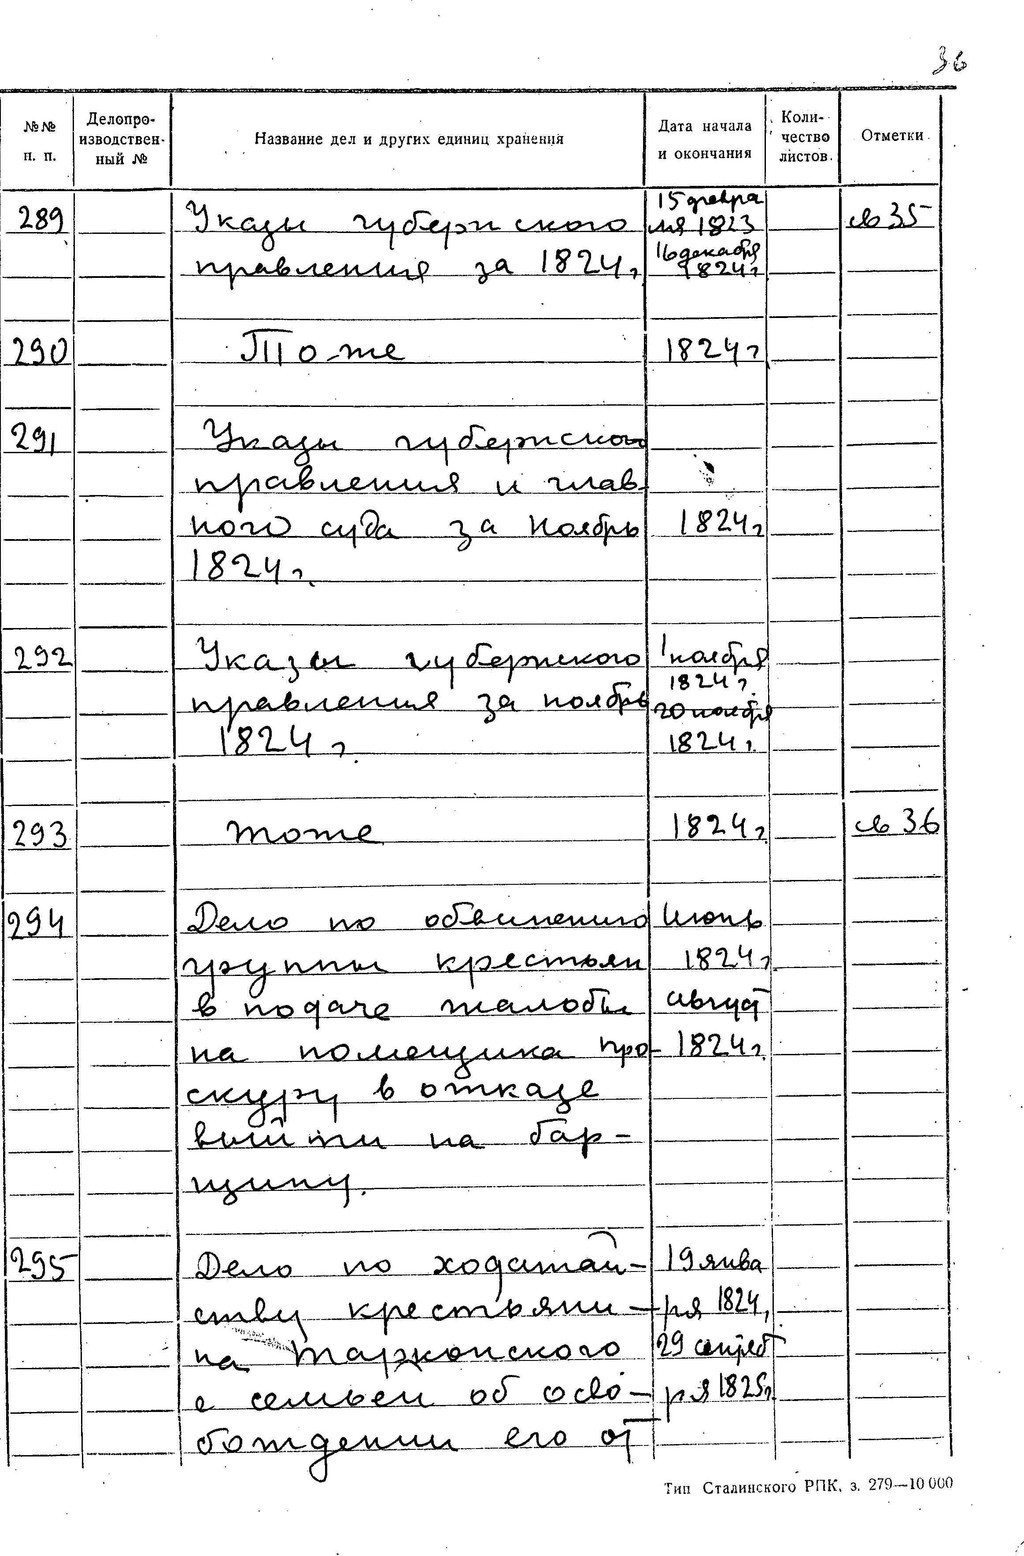 36
№№ п. п.
Делопро-
изводствен-
ный №
Название дел и других единиц хранения
Дата начала
и окончания
Коли-
чество
листов.
Отметки
289
Указы губернского
правления за 1824 г.
15 февра
ля 1823
16 декабря
1824 г.
св 35
290
То-же
1824 г
291
Указы губернского
правления и глав-
ного суда за ноябрь
1824 г.
1824 г
292
Указы губернского
правления за ноябрь
1824 г.
1 ноября
1824 г.
20 ноября
1824 г.
293
тоже
1824 г
св 36
294
Дело по обвинению
группы крестьян
в подаче жалобы
на помещика Про-
скуру в отказе
выйти на бар-
щину.
Июнь
1824 г
август
1824 г.
295
Дело по ходатай-
ству крестьяни-
на Таржонского
с семьей об осво-
бождении его от
19 янва
ря 1824,
29 сентяб
ря 1825 г.
Тип Сталинского РПК, з. 279—10 000